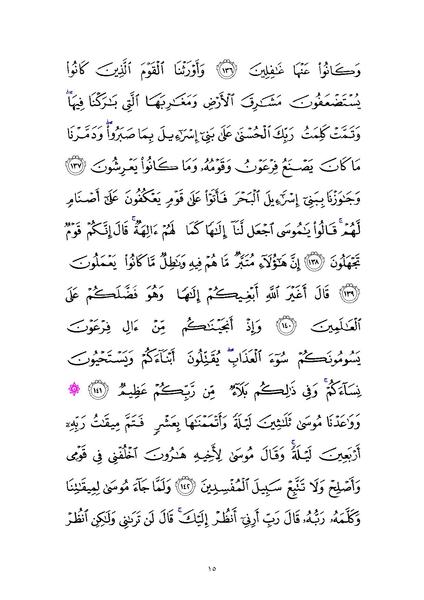 وَكَانُوا۟ عَنْهَا غَٰفِلِينَ ١٣٦ وَأَوْرَثْنَا ٱلْقَوْمَ ٱلَّذِينَ كَانُوا۟
يُسْتَضْعَفُونَ مَشَٰرِقَ ٱلْأَرْضِ وَمَغَٰرِبَهَا ٱلَّتِى بَٰرَكْنَا فِيهَا ۖ
وَتَمَّتْ كَلِمَتُ رَبِّكَ ٱلْحُسْنَىٰ عَلَىٰ بَنِىٓ إِسْرَٰٓءِيلَ بِمَا صَبَرُوا۟ ۖ وَدَمَّرْنَا
مَا كَانَ يَصْنَعُ فِرْعَوْنُ وَقَوْمُهُۥ وَمَا كَانُوا۟ يَعْرِشُونَ ١٣٧
وَجَٰوَزْنَا بِبَنِىٓ إِسْرَٰٓءِيلَ ٱلْبَحْرَ فَأَتَوْا۟ عَلَىٰ قَوْمٍ يَعْكُفُونَ عَلَىٰٓ أَصْنَامٍ
لَّهُمْ ۚ قَالُوا۟ يَٰمُوسَى ٱجْعَل لَّنَآ إِلَٰهًا كَمَا لَهُمْ ءَالِهَةٌ ۚ قَالَ إِنَّكُمْ قَوْمٌ
تَجْهَلُونَ ١٣٨ إِنَّ هَٰٓؤُلَآءِ مُتَبَّرٌ مَّا هُمْ فِيهِ وَبَٰطِلٌ مَّا كَانُوا۟ يَعْمَلُونَ
١٣٩ قَالَ أَغَيْرَ ٱللَّهِ أَبْغِيكُمْ إِلَٰهًا وَهُوَ فَضَّلَكُمْ عَلَى
ٱلْعَٰلَمِينَ ١٤٠ وَإِذْ أَنجَيْنَٰكُم مِّنْ ءَالِ فِرْعَوْنَ
يَسُومُونَكُمْ سُوٓءَ ٱلْعَذَابِ ۖ يُقَتِّلُونَ أَبْنَآءَكُمْ وَيَسْتَحْيُونَ
نِسَآءَكُمْ ۚ وَفِى ذَٰلِكُم بَلَآءٌ مِّن رَّبِّكُمْ عَظِيمٌ ١٤١ ۞
وَوَٰعَدْنَا مُوسَىٰ ثَلَٰثِينَ لَيْلَةً وَأَتْمَمْنَٰهَا بِعَشْرٍ فَتَمَّ مِيقَٰتُ رَبِّهِۦٓ
أَرْبَعِينَ لَيْلَةً ۚ وَقَالَ مُوسَىٰ لِأَخِيهِ هَٰرُونَ ٱخْلُفْنِى فِى قَوْمِى
وَأَصْلِحْ وَلَا تَتَّبِعْ سَبِيلَ ٱلْمُفْسِدِينَ ١٤٢ وَلَمَّا جَآءَ مُوسَىٰ لِمِيقَٰتِنَا
وَكَلَّمَهُۥ رَبُّهُۥ قَالَ رَبِّ أَرِنِىٓ أَنظُرْ إِلَيْكَ ۚ قَالَ لَن تَرَىٰنِى وَلَٰكِنِ ٱنظُرْ
١٥